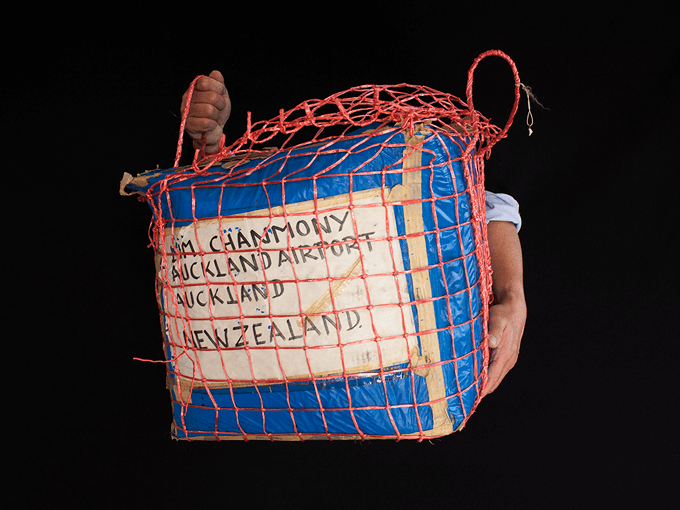 CHANMONY
AUCKLAND AIRPORT
AUCKLAND
NEWZEALAND.